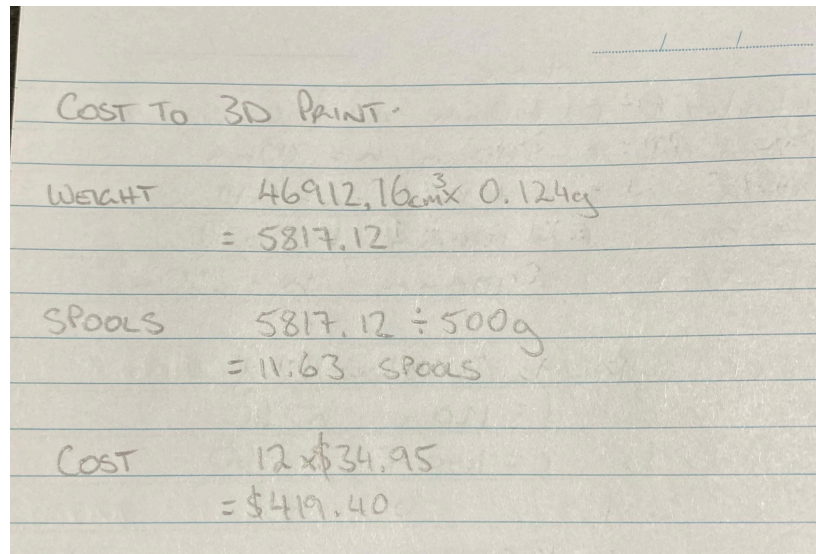 COST TO 3D PRINT.
WEIGHT 46912.16cm³x 0.124g
= 5817.12
SPOOLS 5817.12 ÷ 500g
= 11.63 SPOOLS
COST 12 x $34.95
= $419.40